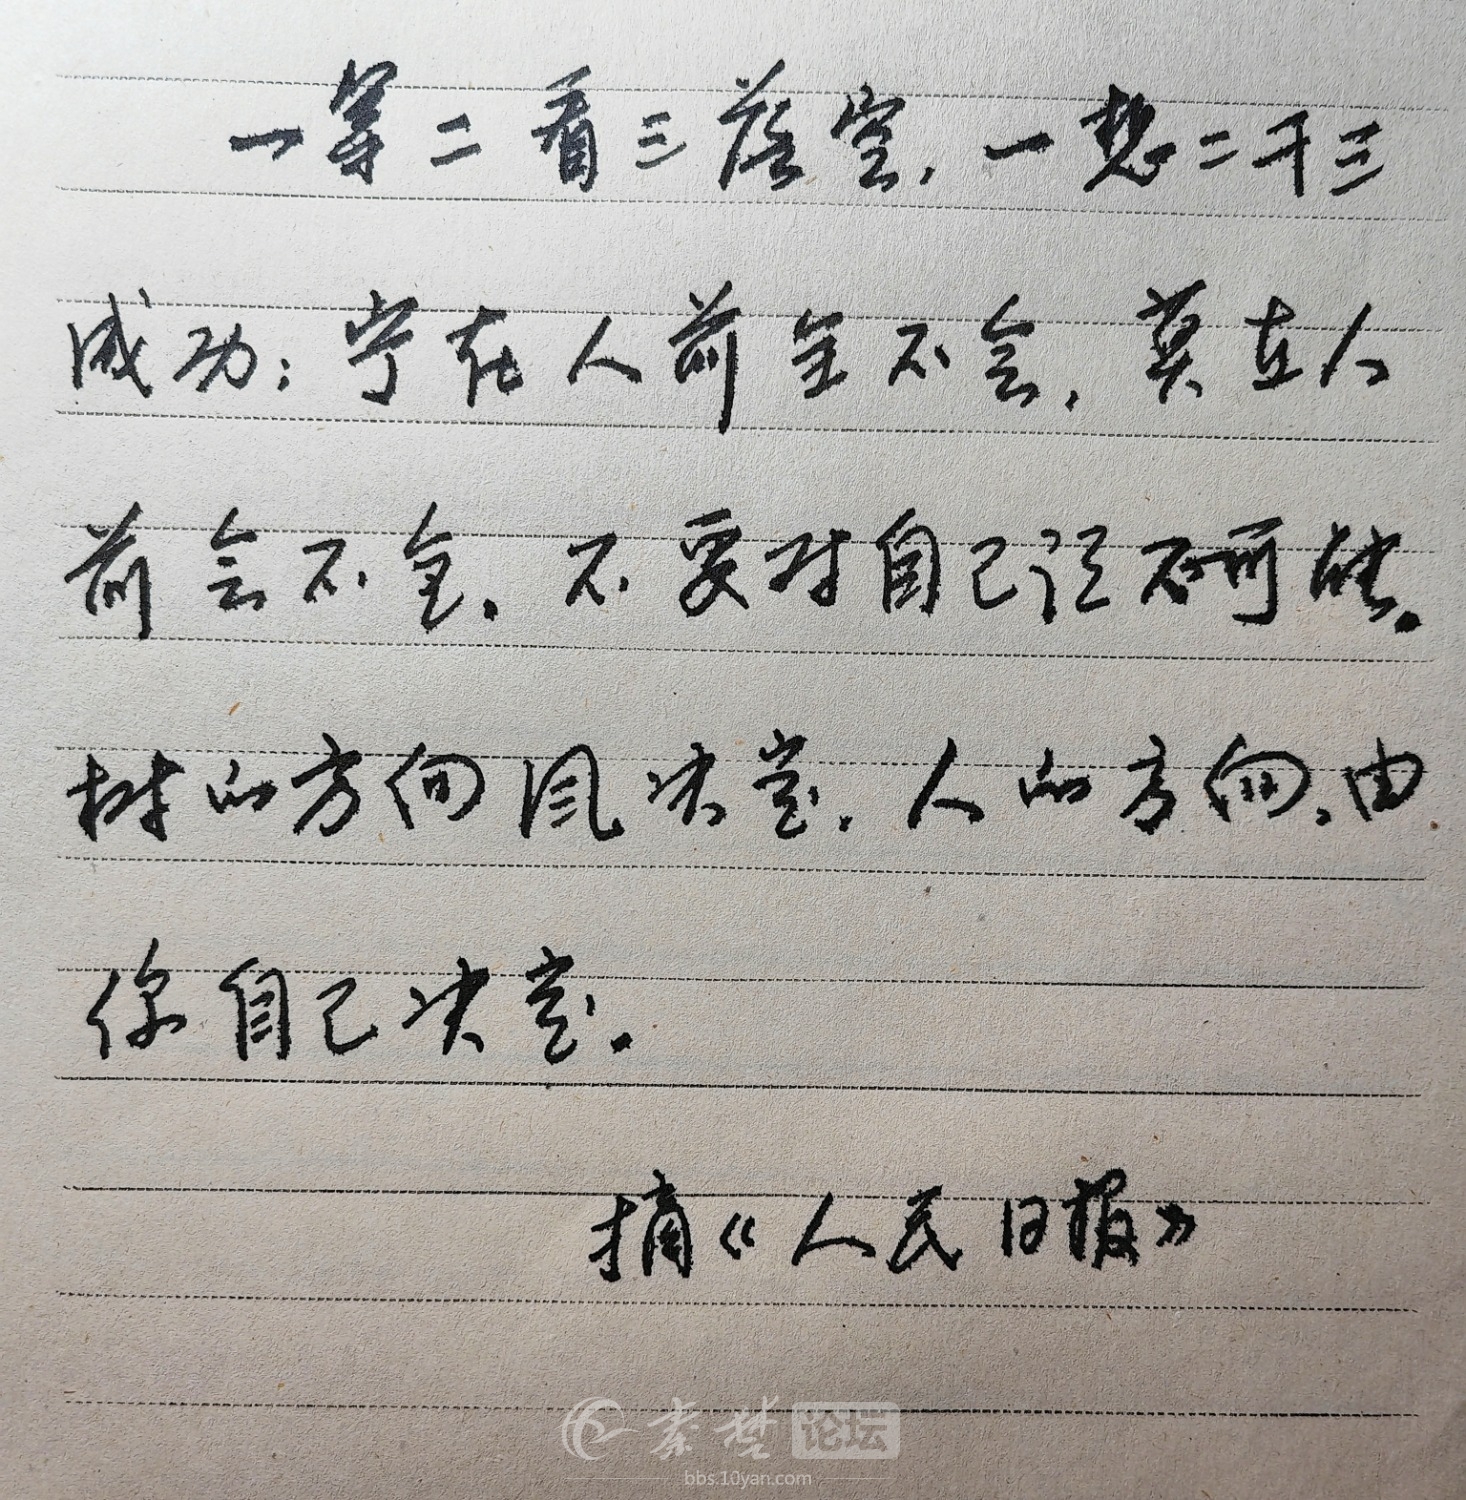 一等二看三落空，一想二干三
成功；宁在人前全不会，莫在人
前会不全。不要对自己说不可能。
树的方向风决定，人的方向，由
你自己决定。
摘《人民日报》
秦楚论坛
bbs.10yan.com